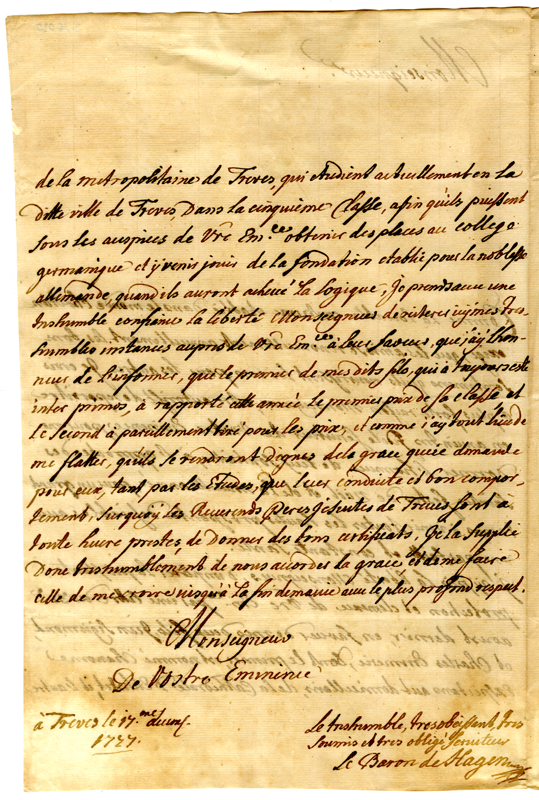 de la metropolitaine de Treves, qui etudient actuellement en la
ditte ville de Treves, Dans la cinquième Classe, afin qu'ils puissent
sous les auspices de Vre Em.ce obtenir des places au college
germanique et y venir jouir de la fondation etablie pour la noblesse
allemande, quand ils auront achevé la logique, Je prens avec une
tres humble confiance la liberté Monseigneur de reiterer icy mes tres
humbles instances aupres de Vre Em.ce à leur faveur, que j'ay l'hon-
neur de L'informer, que le premier de mes dits fils, qui a toujours esté
inter primos, à rapporté cette année le premier prix de sa classe et
le second à pareillement tiré pour les prix, et comme j'ay tout lieu de
me flatter, qu'ils se rendront dignes de la grace que je demande
pour eux, tant par les Etudes, que leur conduite et bon compor-
tement, sur quoy les Reverends Peres Jesuites de Treves sont a
toute heure prestes de Donner des bons certificats, Je la supplie
Donc tres humblement de nous accorder la grace et de me faire
celle de me croire jusqu'à la fin de ma vie avec le plus profond respect.
Monseigneur
De Vostre Eminence,
à Treves le 17.me
1727.
Le tres humble, tres obeissent, tres
soumis et tres obligé serviteur
Le Baron de Hagen
Monseigneur